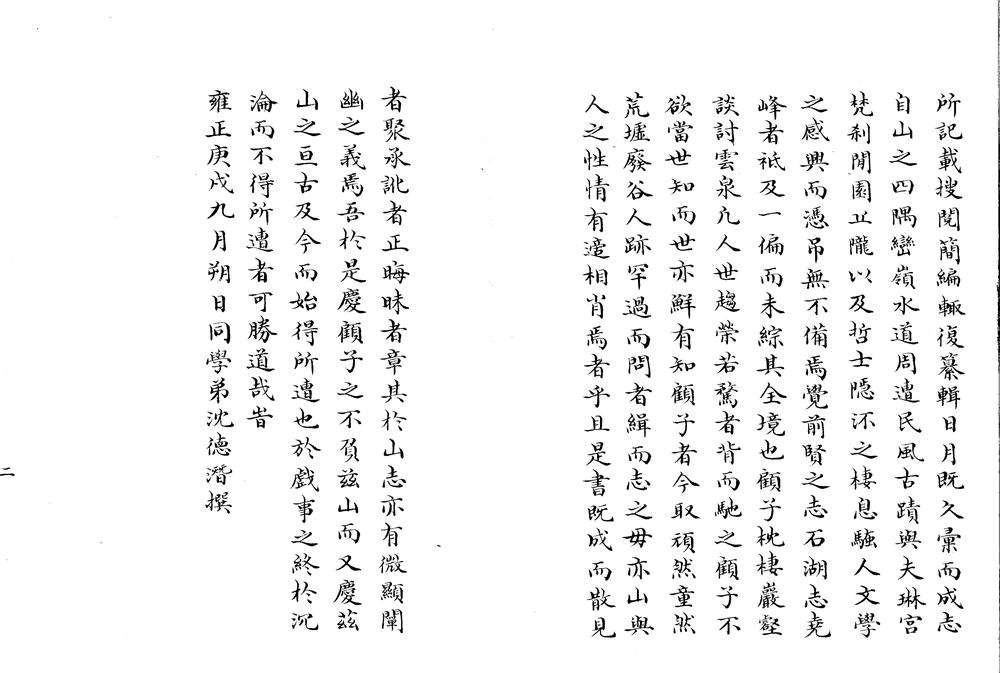 所記載搜閱簡編輙復纂輯日月既久彚而成志
自山之四隅巒嶺水道周遭民風古蹟與夫琳宮
梵刹閒園丘隴以及哲士隱沠之棲息騷人文學
之感興而憑吊無不備焉覺前賢之志石湖志堯
峰者祗及一偏而未綜其全境也顧子枕棲巖壑
談討雲泉凢人世趨榮若騖者背而馳之顧子不
欲當世知而世亦鮮有知顧子者今取頑然童然
荒墟廢谷人跡罕過而問者緝而志之毋亦山與
人之性情有適相肖焉者乎且是書既成而散見
者聚承訛者正晦昧者章其於山志亦有微顯闡
幽之義焉吾於是慶顧子之不負兹山而又慶兹
山之亘古及今而始得所遭也於戲事之終於沉
淪而不得所遭者可勝道哉旹
雍正庚戌九月朔日同學弟沈德潛撰
二